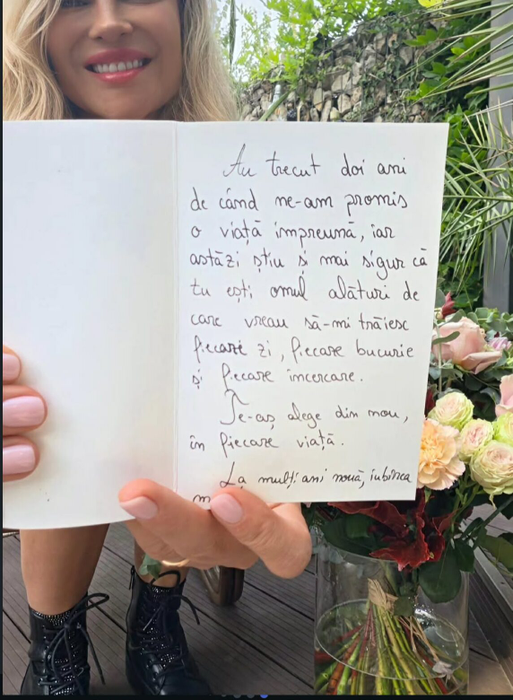 Au trecut doi ani
de când ne-am promis
o viață împreună, iar
astăzi știu și mai sigur că
tu ești omul alături de
care vreau să-mi trăiesc
fiecare zi, fiecare bucurie
și fiecare încercare.
Te-aș alege din nou,
în fiecare viață.
La mulți ani nouă, iubirea